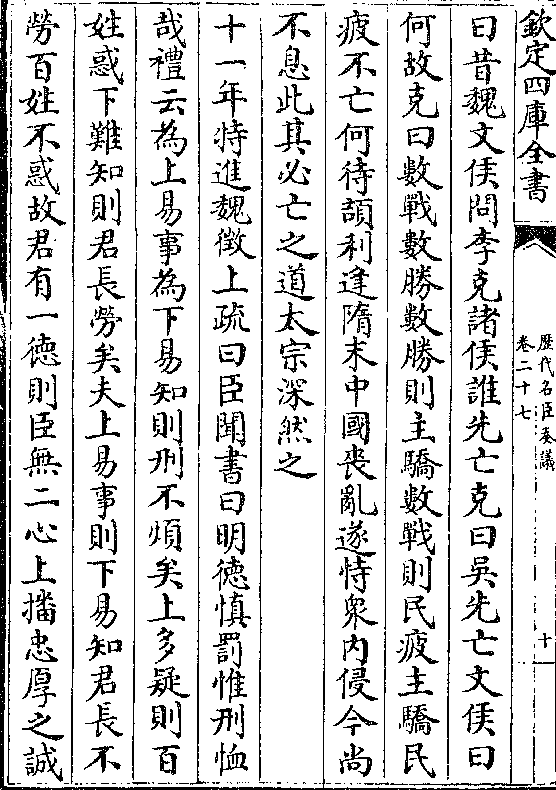 欽定四庫全書
歷代名臣奏議
卷二十七
十
曰昔魏文侯問李克諸侯誰先亡克曰吳先亡文侯曰
何故克曰數戰數勝數勝則主驕數戰則民疲主驕民
疲不亡何待頡利逢隋末中國喪亂遂恃衆內侵今尚
不息此其必亡之道太宗深然之
十一年特進魏徵上疏曰臣聞書曰明德慎罰惟刑恤
哉禮云為上易事為下易知則刑不煩矣上多疑則百
姓惑下難知則君長勞矣夫上易事則下易知君長不
勞百姓不惑故君有一德則臣無二心上播忠厚之誠